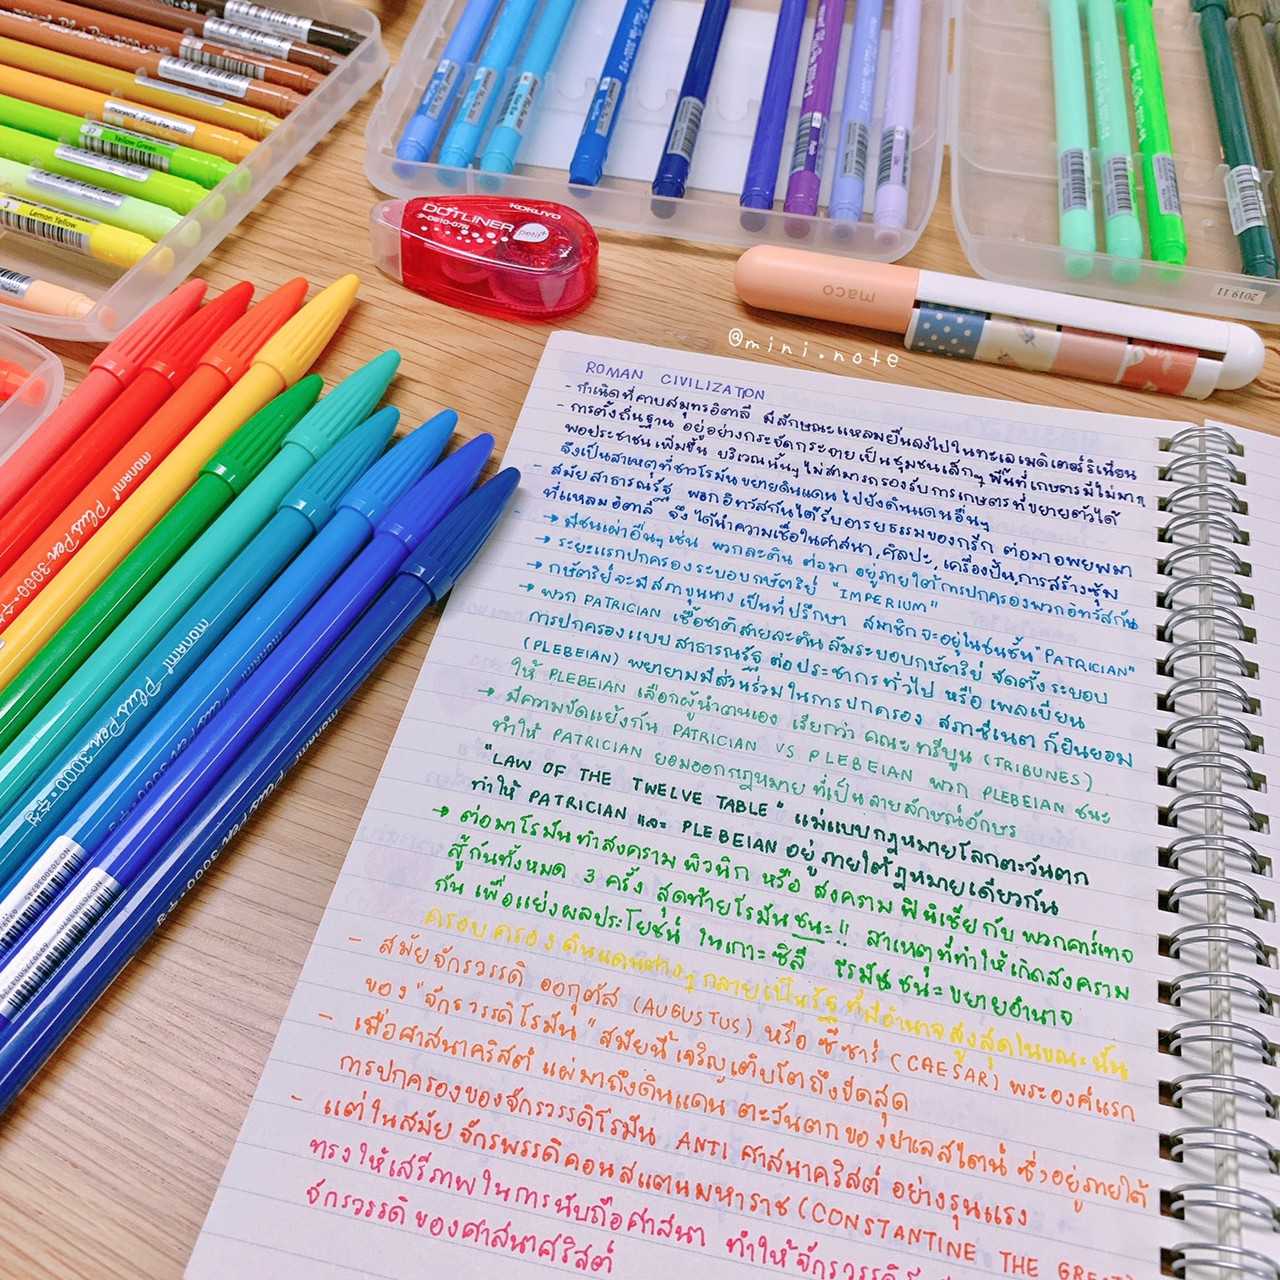 monami Plus Pen 3000
37 Yellow Green
3 Lemon Yellow
DOTLINER
KOKUYO
petit+
maco
2019.11
@mini.note
ROMAN CIVILIZATON
- กำเนิดที่คาบสมุทรอิตาลี มีลักษณะแหลมยื่นลงไปในทะเลเมดิเตอร์ริเนียน
- การตั้งถิ่นฐาน อยู่อย่างกระจัดกระจายเป็นชุมชนเล็กๆ พื้นที่เกษตรมีไม่มาก
พอประชาชนเพิ่มขึ้น บริเวณนั้นๆ ไม่สามารถรองรับการเกษตรที่ขยายตัวได้
จึงเป็นสาเหตุที่ชาวโรมันขยายดินแดนไปยังดินแดนอื่นๆ
- สมัยสาธารณรัฐ พวกอิทรัสกันได้รับอารยธรรมของกรีก ต่อมาอพยพมา
ที่แหลมอิตาลี จึงได้นำความเชื่อในศาสนา, ศิลปะ, เครื่องปั้น, การสร้างซุ้ม
- → มีชนเผ่าอื่นๆ เช่น พวกละติน ต่อมา อยู่ภายใต้การปกครองพวกอิทรัสกัน
→ ระยะแรกปกครองระบอบกษัตริย์ "IMPERIUM"
→ กษัตริย์จะมีสภาขุนนางเป็นที่ปรึกษา สมาชิกจะอยู่ในชนชั้น "PATRICIAN"
→ พวก PATRICIAN เชื้อชาติสายละติน ล้มระบอบกษัตริย์ จัดตั้งระบอบ
การปกครองแบบสาธารณรัฐ ต่อประชากรทั่วไป หรือ เพลเบียน
(PLEBEIAN) พยายามมีส่วนร่วมในการปกครอง สภาซีเนตก็ยินยอม
ให้ PLEBEIAN เลือกผู้นำตนเอง เรียกว่า คณะทรีบูน (TRIBUNES)
→ มีความขัดแย้งกัน PATRICIAN VS PLEBEIAN พวก PLEBEIAN ชนะ
ทำให้ PATRICIAN ยอมออกกฎหมายที่เป็นลายลักษณ์อักษร
"LAW OF THE TWELVE TABLE" แม่แบบกฎหมายโลกตะวันตก
ทำให้ PATRICIAN และ PLEBEIAN อยู่ภายใต้กฎหมายเดียวกัน
→ ต่อมาโรมันทำสงคราม พิวนิก หรือ สงครามฟินิเชียกับพวกคาร์เทจ
สู้กันทั้งหมด 3 ครั้ง สุดท้ายโรมันชนะ!! สาเหตุที่ทำให้เกิดสงคราม
กันเพื่อแย่งผลประโยชน์ในเกาะซิลี โรมันชนะขยายอำนาจ
ครอบครองดินแดนต่างๆ กลายเป็นรัฐที่มีอำนาจสูงสุดในขณะนั้น
- สมัยจักรวรรดิ ออกุตัส (AUGUSTUS) หรือ ซีซาร์ (CAESAR) พระองค์แรก
ของ "จักรวรรดิโรมัน" สมัยนี้เจริญเติบโตถึงขีดสุด
- เมื่อศาสนาคริสต์ แผ่มาถึงดินแดนตะวันตกของปาเลสไตน์ ซึ่งอยู่ภายใต้
การปกครองของจักรวรรดิโรมัน ANTI ศาสนาคริสต์อย่างรุนแรง
- แต่ในสมัยจักรพรรดิคอนสแตนมหาราช (CONSTANTINE THE GREAT)
ทรงให้เสรีภาพในการนับถือศาสนา ทำให้จักรวรรดิ
จักรวรรดิของศาสนาคริสต์